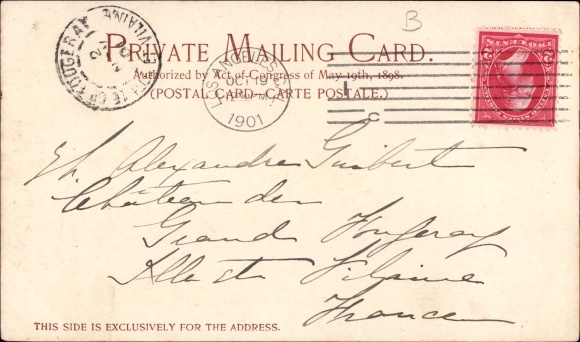 B
PRIVATE MAILING CARD.
Authorized by Act of Congress of May 19th, 1898.
(POSTAL CARD—CARTE POSTALE.)
LOS ANGELES, CAL.
OCT
1901
1
C
Alexandre Guibert
Château du
Grand Fougeray
Ille et Vilaine
France
THIS SIDE IS EXCLUSIVELY FOR THE ADDRESS.